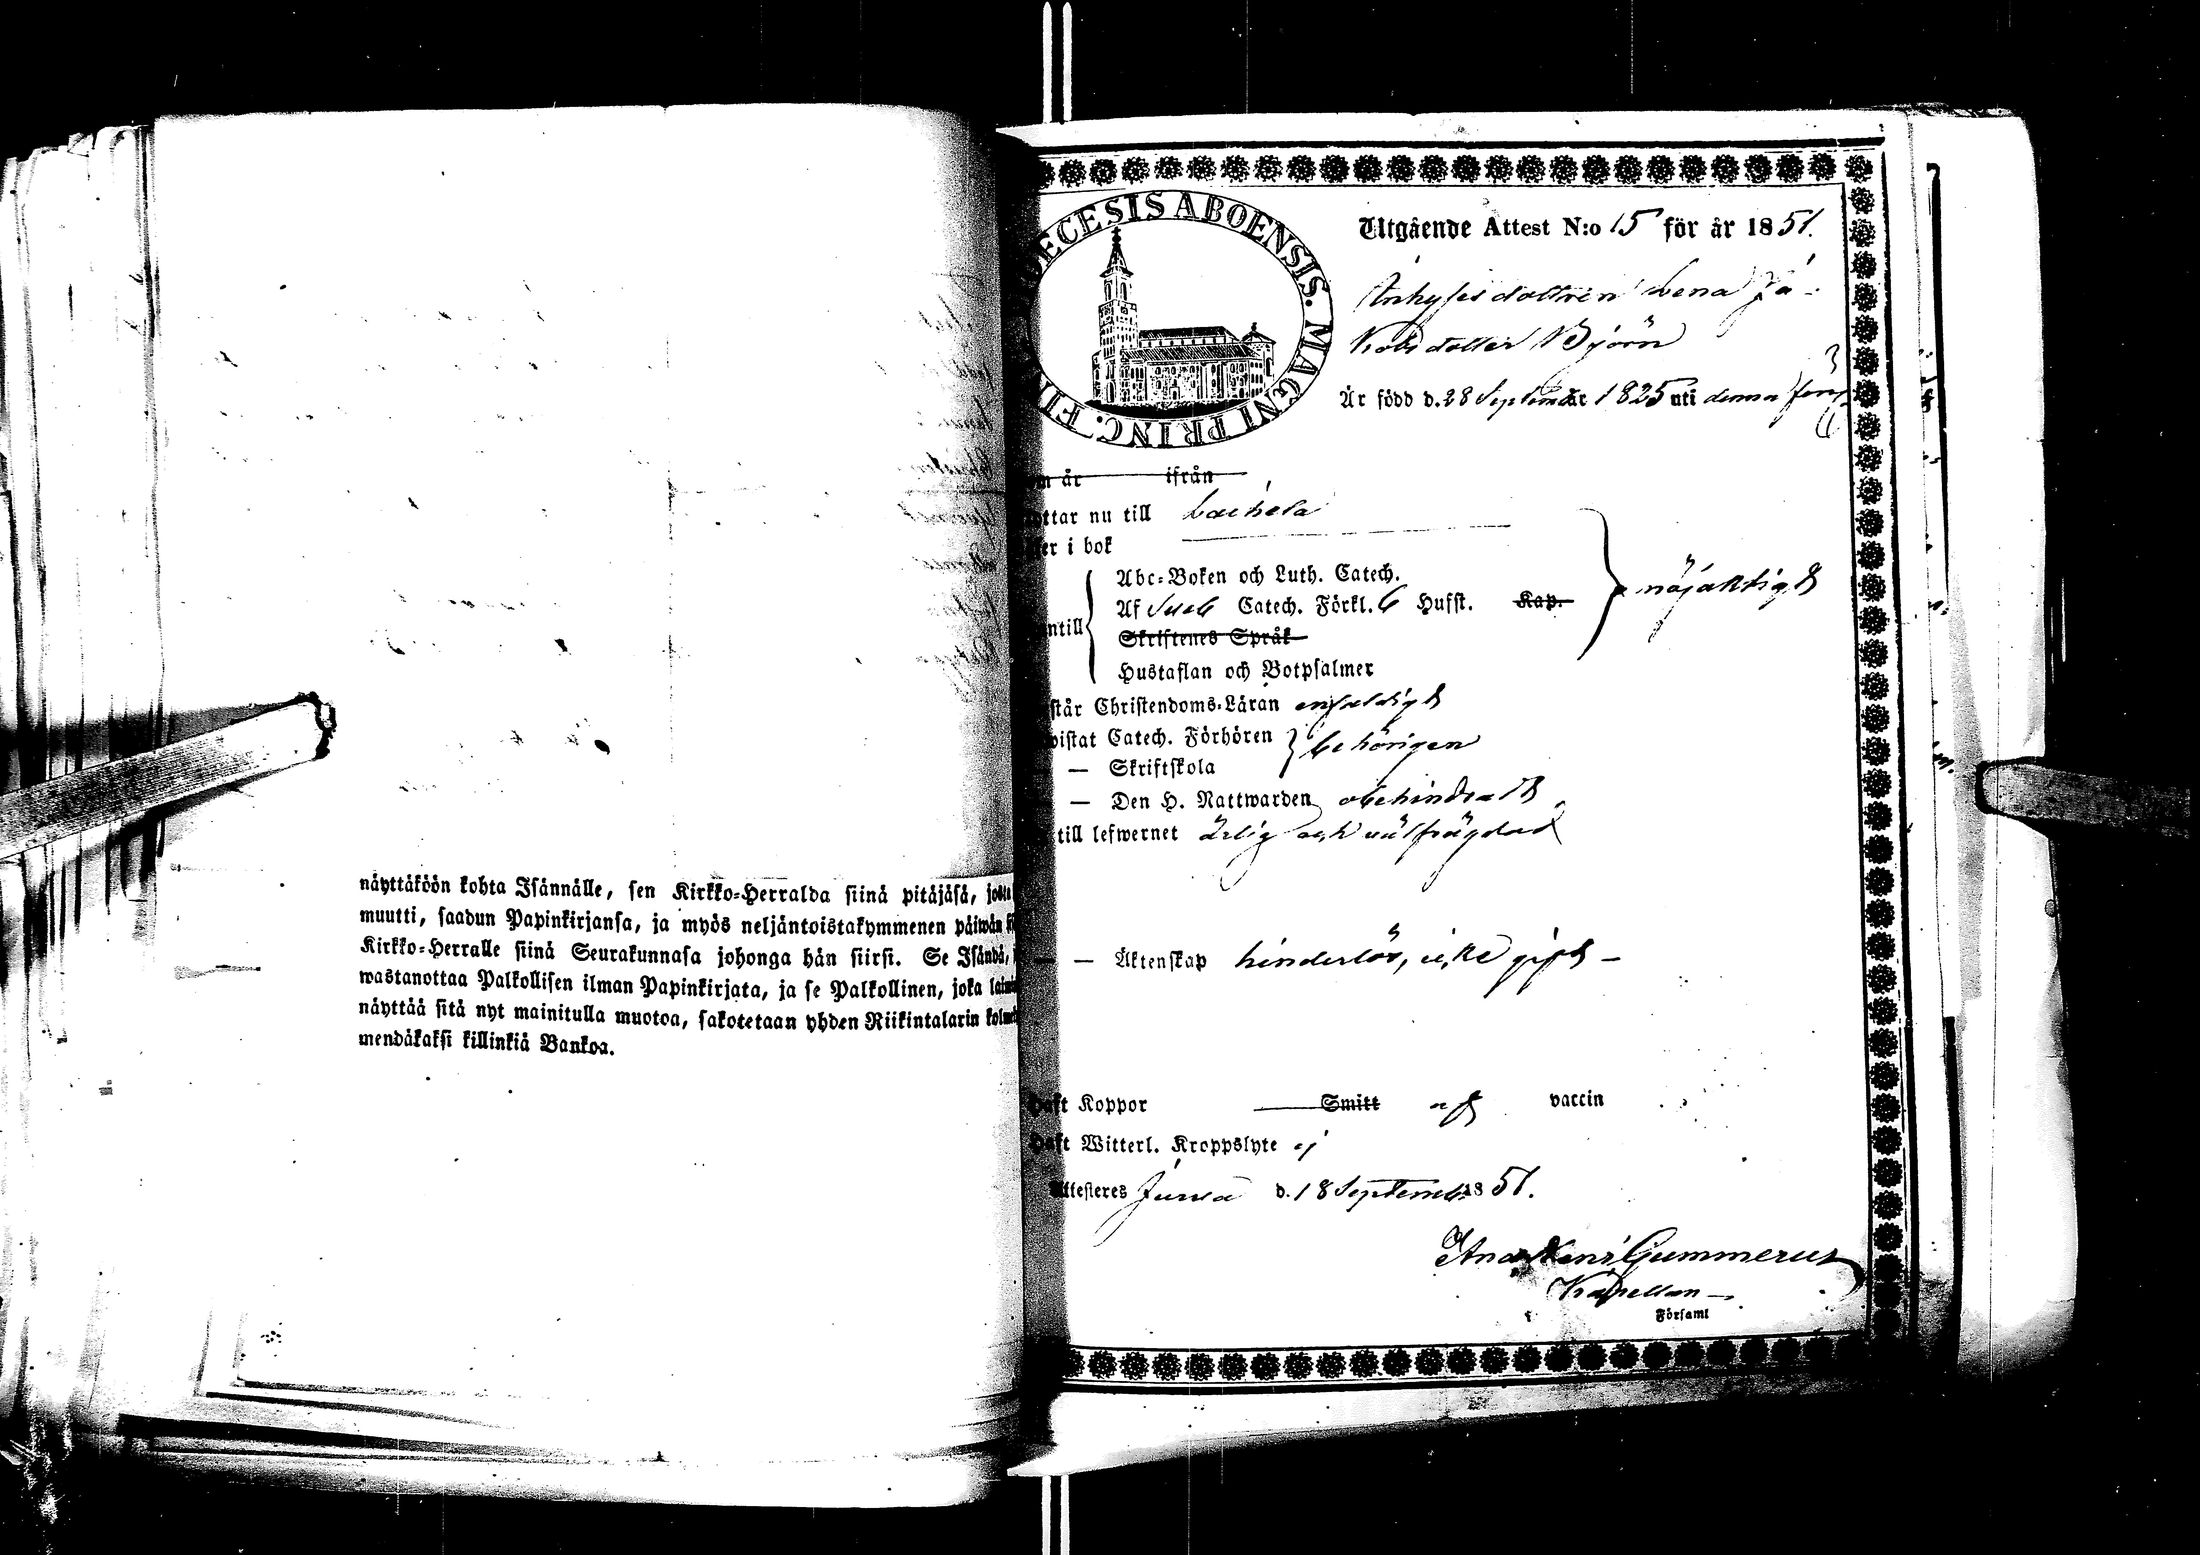 näyttäköön kohta Isännälle, sen Kirkko-Herralda siinä pitäjäsä, josta
muutti, saadun Papinkirjansa, ja myös neljäntoistakymmenen päiwän
Kirkko-Herralle siinä Seurakunnasa johonga hän siirsi. Se Isändä,
wastanottaa Palkollisen ilman Papinkirjata, ja se Palkollinen, joka
näyttää sitä nyt mainitulla muotoa, sakotetaan yhden Riikintalarin
mendäkaksi killinkiä Bankoa.
ECESIS ABOENSIS. MAGNI PRINC. FI
Utgående Attest N:o 15 för år 1851.
Inhyses dottren Lena Ja-
kobsdotter Björn
Är född d. 28 September 1825 uti denna förs
om år ifrån
ttar nu till Laihela
er i bok
Abc-Boken och Luth. Catech.
Af Sveb Catech. Förkl. 6 Hufst. Kap.
ntill
Skriftenes Språk
Hustaflan och Botpsalmer
nöjaktigt
står Christendoms-Läran enfaldigt
wistat Catech. Förhören
behörigen
— Skriftskola
— Den H. Nattwarden obehindradt
till lefwernet ärlig och välfrägdad
— — Äktenskap hinderlös, icke gift —
Haft Koppor Smitt af vaccin
Haft Witterl. Kroppslyte ej
Attesteres Jurva d. 18 September 1851.
Gummerus
Kapellan
i Församl